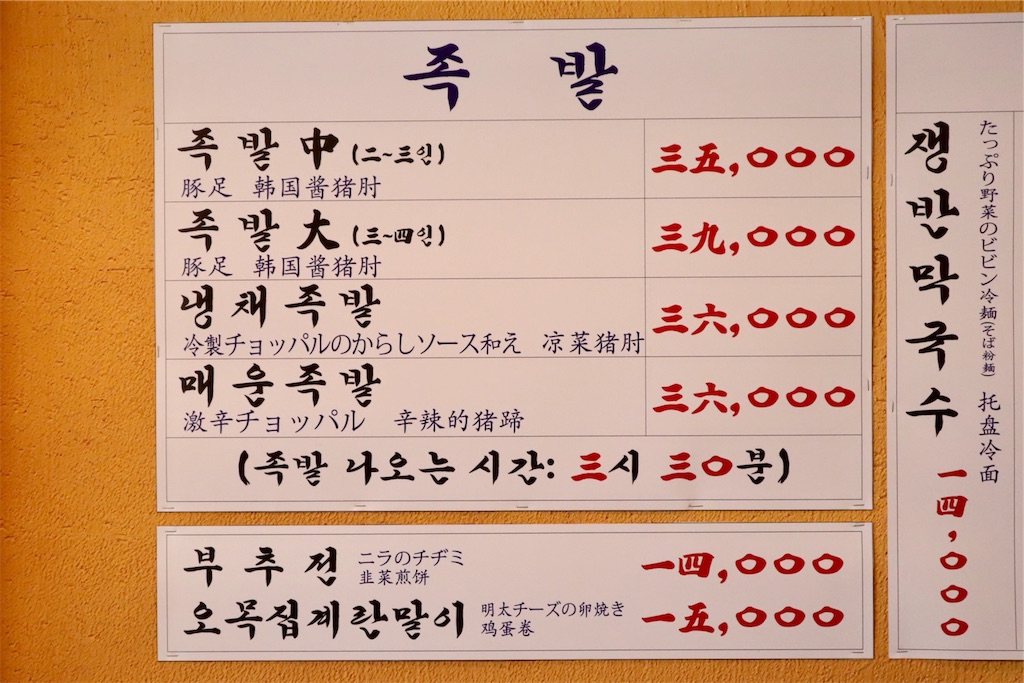 족 발
족 발 中 (二~三인) 三五,○○○
豚足 韩国酱猪肘
족 발 大 (三~四인) 三九,○○○
豚足 韩国酱猪肘
냉 채 족 발 三六,○○○
冷製チョッパルのからしソース和え 凉菜猪肘
매 운 족 발 三六,○○○
激辛チョッパル 辛辣的猪蹄
(족발 나오는 시간: 三시 三○분)
부 추 전 ニラのチヂミ 一四,○○○
韭菜煎饼
오목집계란말이 明太チーズの卵焼き 一五,○○○
鸡蛋卷
たっぷり野菜のビビン冷麺(そば粉麺) 托盘冷面
쟁반막국수 一四,○○○